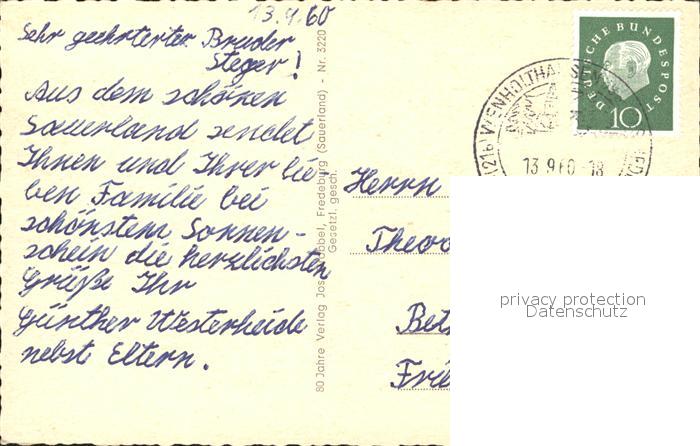 13.9.60
Sehr geehrterter Bruder
Steger!
Aus dem schönen
Sauerland sendet
Ihnen und Ihrer lie-
ben Familie bei
schönstem Sonnen-
schein die herzlichsten
Grüße Ihr
Günther Westerheide
nebst Eltern.
80 Jahre Verlag Jos. Grobbel, Fredeburg (Sauerland) - Nr. 3220
Gesetzl. gesch.
DEUTSCHE BUNDESPOST
10
(21b) WENHOLTHAUSEN
13.9.60-18
Herrn
Theo
Bet
Frie
privacy protection
Datenschutz